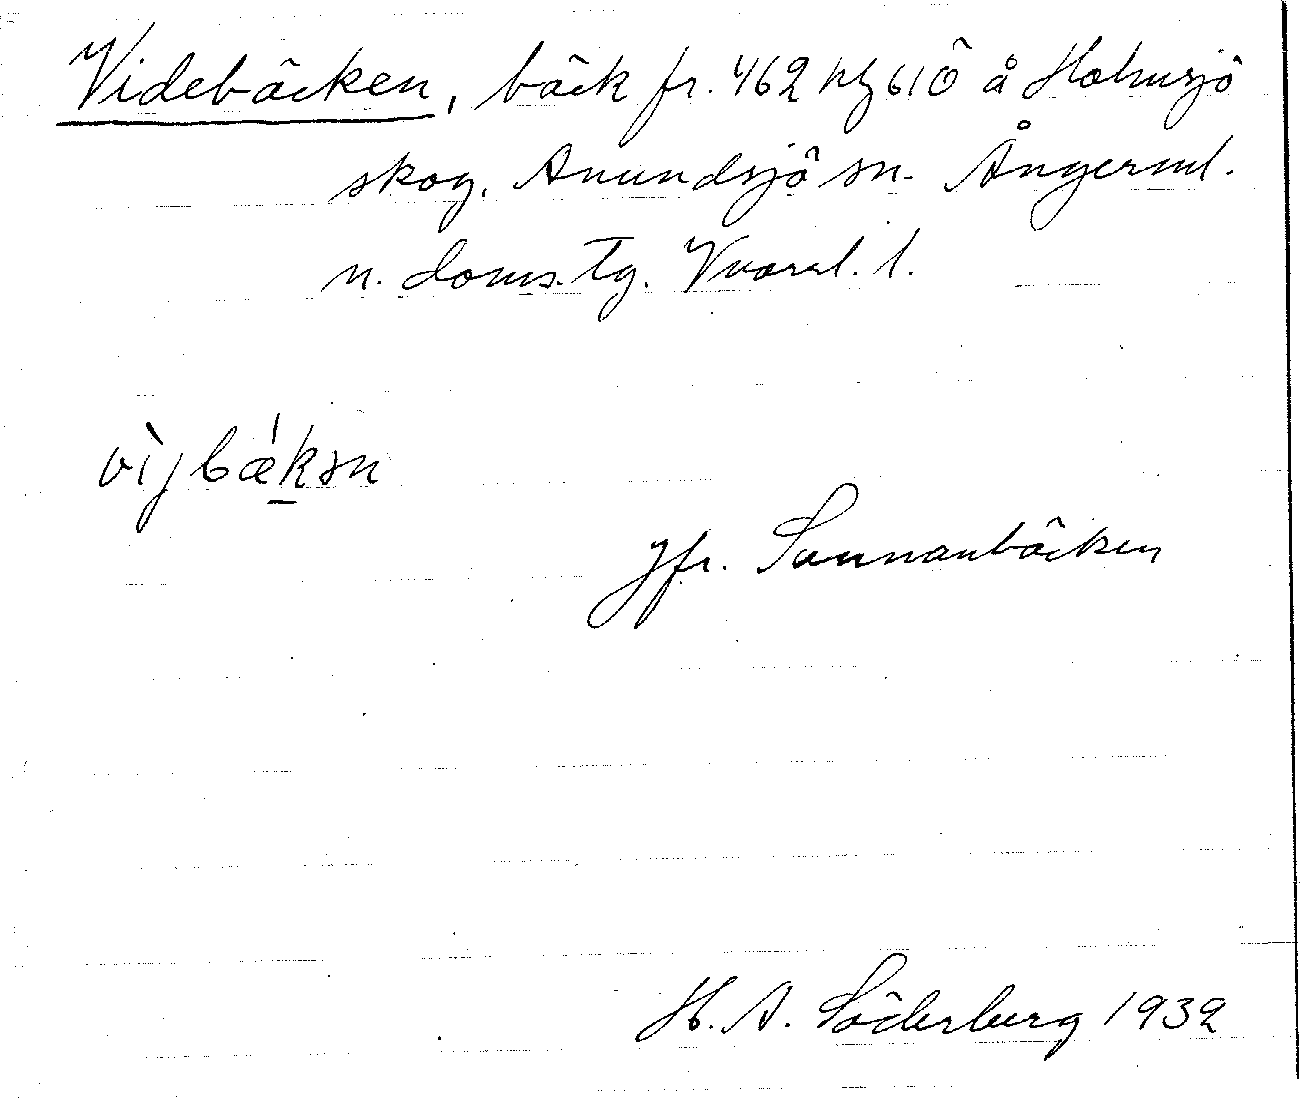 Videbäcken, bäck fr. 462 kfg 610 å Holmsjö
skog. Anundsjö sn. Ångerml.
n. doms. Tg. Vnorrl. l.
vìjbǽkən
Jfr. Sunnanbäcken
H. A. Söderberg 1932